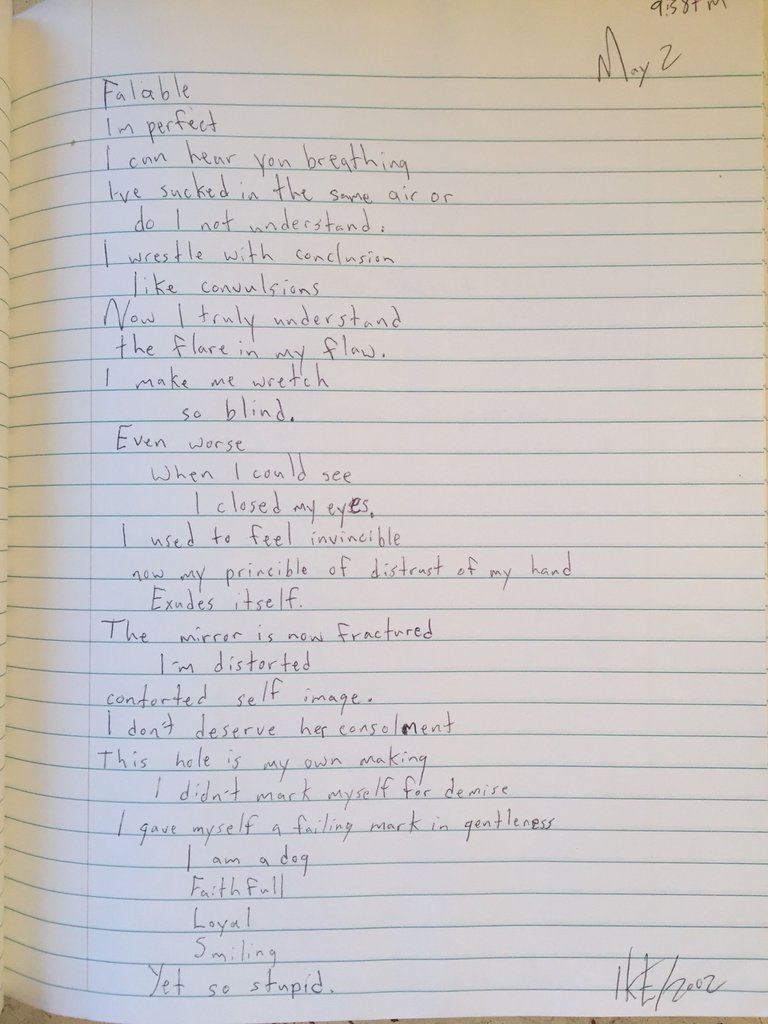 9:38 PM
May 2
Faliable
Im perfect
I can hear you breathing
I've sucked in the same air or
do I not understand.
I wrestle with conclusion
like convulsions
Now I truly understand
the flare in my flaw.
I make me wretch
so blind.
Even worse
When I could see
I closed my eyes.
I used to feel invincible
now my princible of distrust of my hand
Exudes itself.
The mirror is now fractured
I'm distorted
contorted self image.
I don't deserve her consolment
This hole is my own making
I didn't mark myself for demise
I gave myself a failing mark in gentleness
I am a dog
Faithfull
Loyal
Smiling
Yet so stupid.
IKE/2002